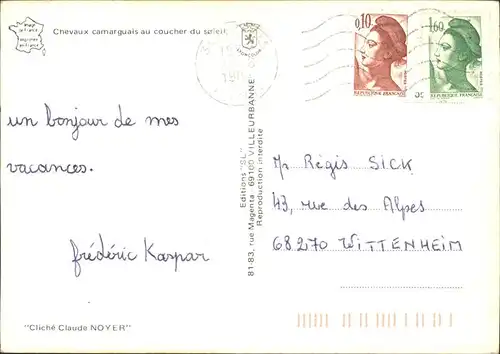 Chevaux camarguais au coucher du soleil.
0,10
1,60
REPUBLIQUE FRANÇAISE
REPUBLIQUE FRANÇAISE
un bonjour de mes
vacances.
frédéric Kaspar
Editions "SL"
81-83, rue Magenta - 69100 VILLEURBANNE
Reproduction interdite
Mr Régis SICK
43, rue des Alpes
68270 WITTENHEIM
"Cliché Claude NOYER"